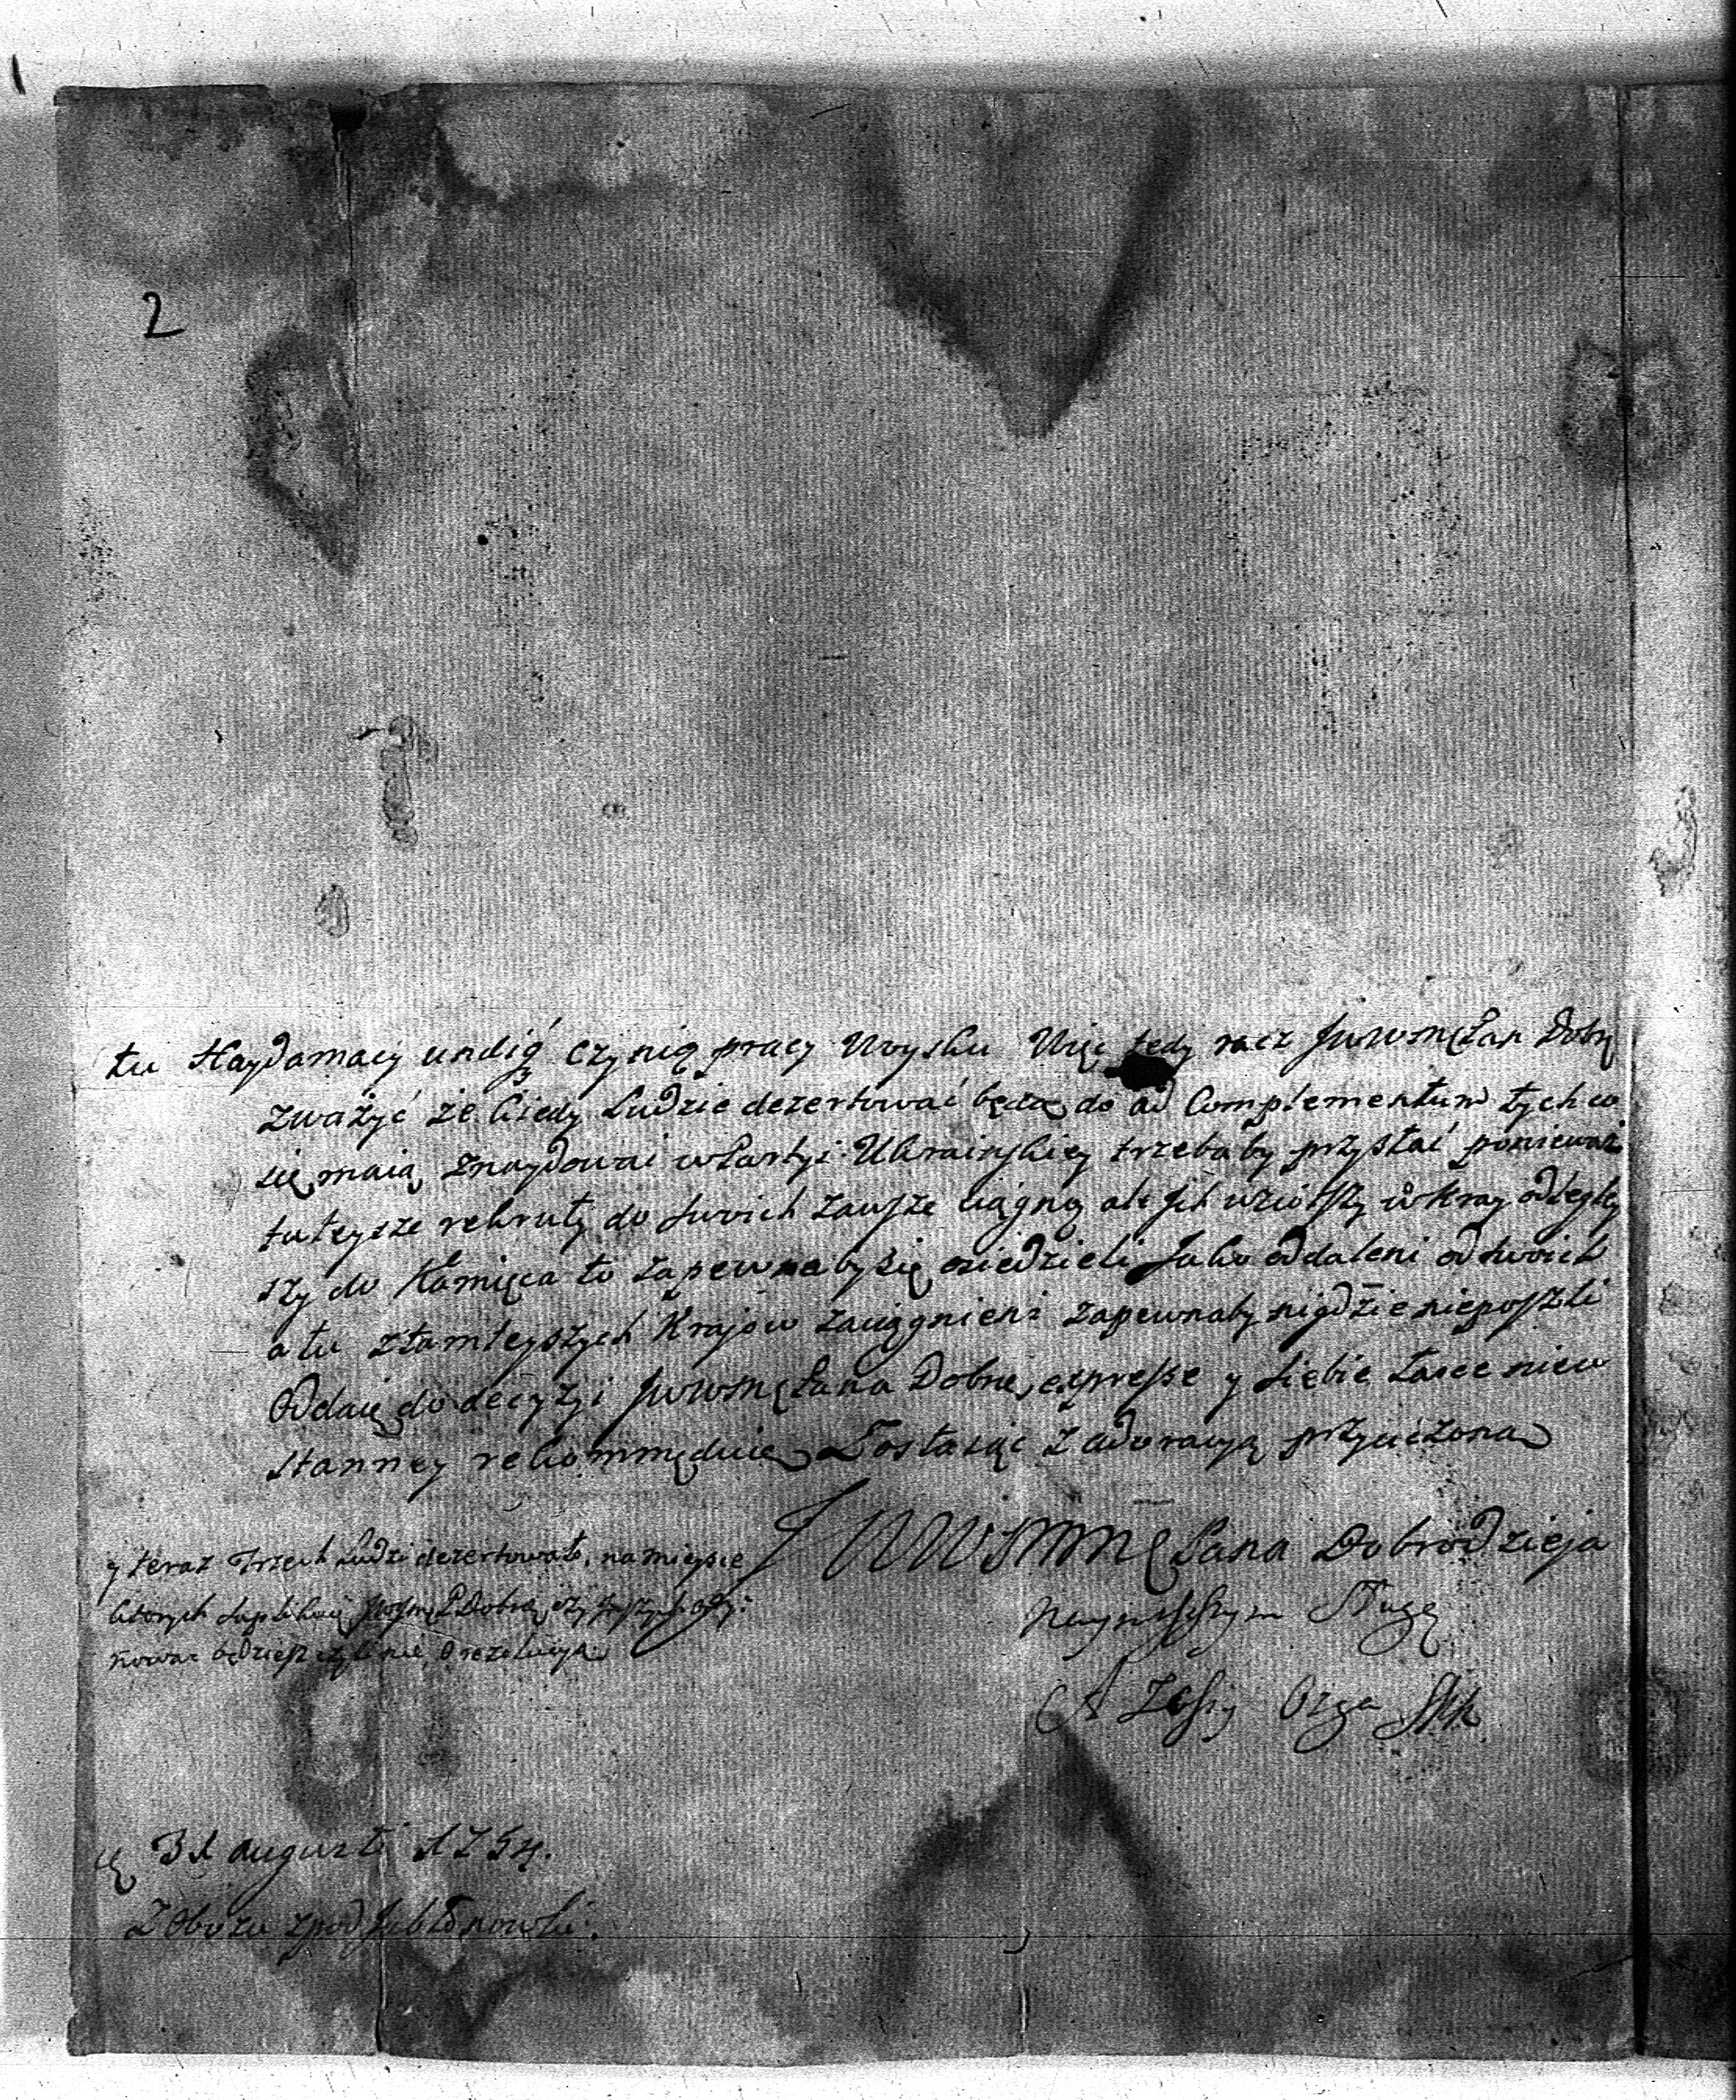 2
tu Haydamacy undiq czynią pracy Woysku Więc tedy racz JWWMę Pan Dobrę
zważyć że kiedy Ludzie dezertować będą do ad Complementum tych co
się maią znaydować w Partyi Ukrainskiey trzeba by przysłać ponieważ
tuteysze rekruty do swoich zawsze ciągną ale jch wziąwszy w kray odlegley
szy do Kamięca to zapewne by się osiedzieli Jako oddaleni od swoich
a tu z tamteyszych Krajow zaciągnieni zapewnaby nigdzie nieposzli
Oddaię do decyzyi JWWMę Pana Dobrę, expresse y siebie Łasce nieu
stanney rekommęduię Zostaiąc z adoracyą przyiczoną
JWWMMę Pana Dobrodzieja
y teraz Trzech Ludzi dezertowało, na mieysce
ktorych suplikuię JWMę P Dobrę, czy
nować będziesz czyli nie, o rezolucyą
Nayniszszym Sługą
Ozga
31 augusti 1754.
Z Obozu zpod Jabłonowki.